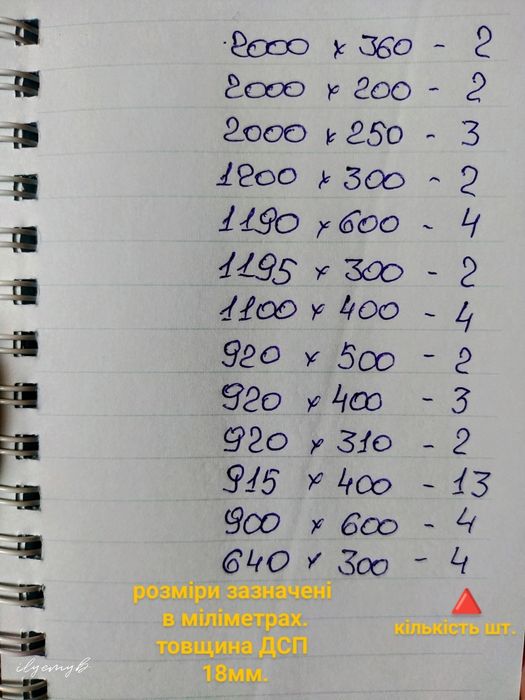 2000 × 360 - 2
2000 × 200 - 2
2000 × 250 - 3
1200 × 300 - 2
1190 × 600 - 4
1195 × 300 - 2
1100 × 400 - 4
920 × 500 - 2
920 × 400 - 3
920 × 310 - 2
915 × 400 - 13
900 × 600 - 4
640 × 300 - 4
розміри зазначені
в міліметрах.
товщина ДСП
18мм.
кількість шт.